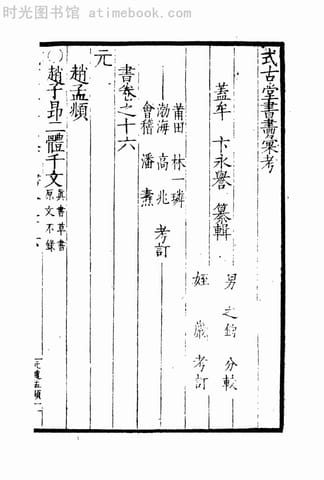 时光图书馆 - www.atimebook.com
式古堂書畫彙考
蓋牟 卞永譽 纂輯
男 之鈞 分較
姪 巖 考訂
莆田 林一璘
渤海 高兆 考訂
會稽 潘
書卷之十六
元
趙孟頫
趙子昂二體千文
真書草書
原文不錄
元趙孟頫一